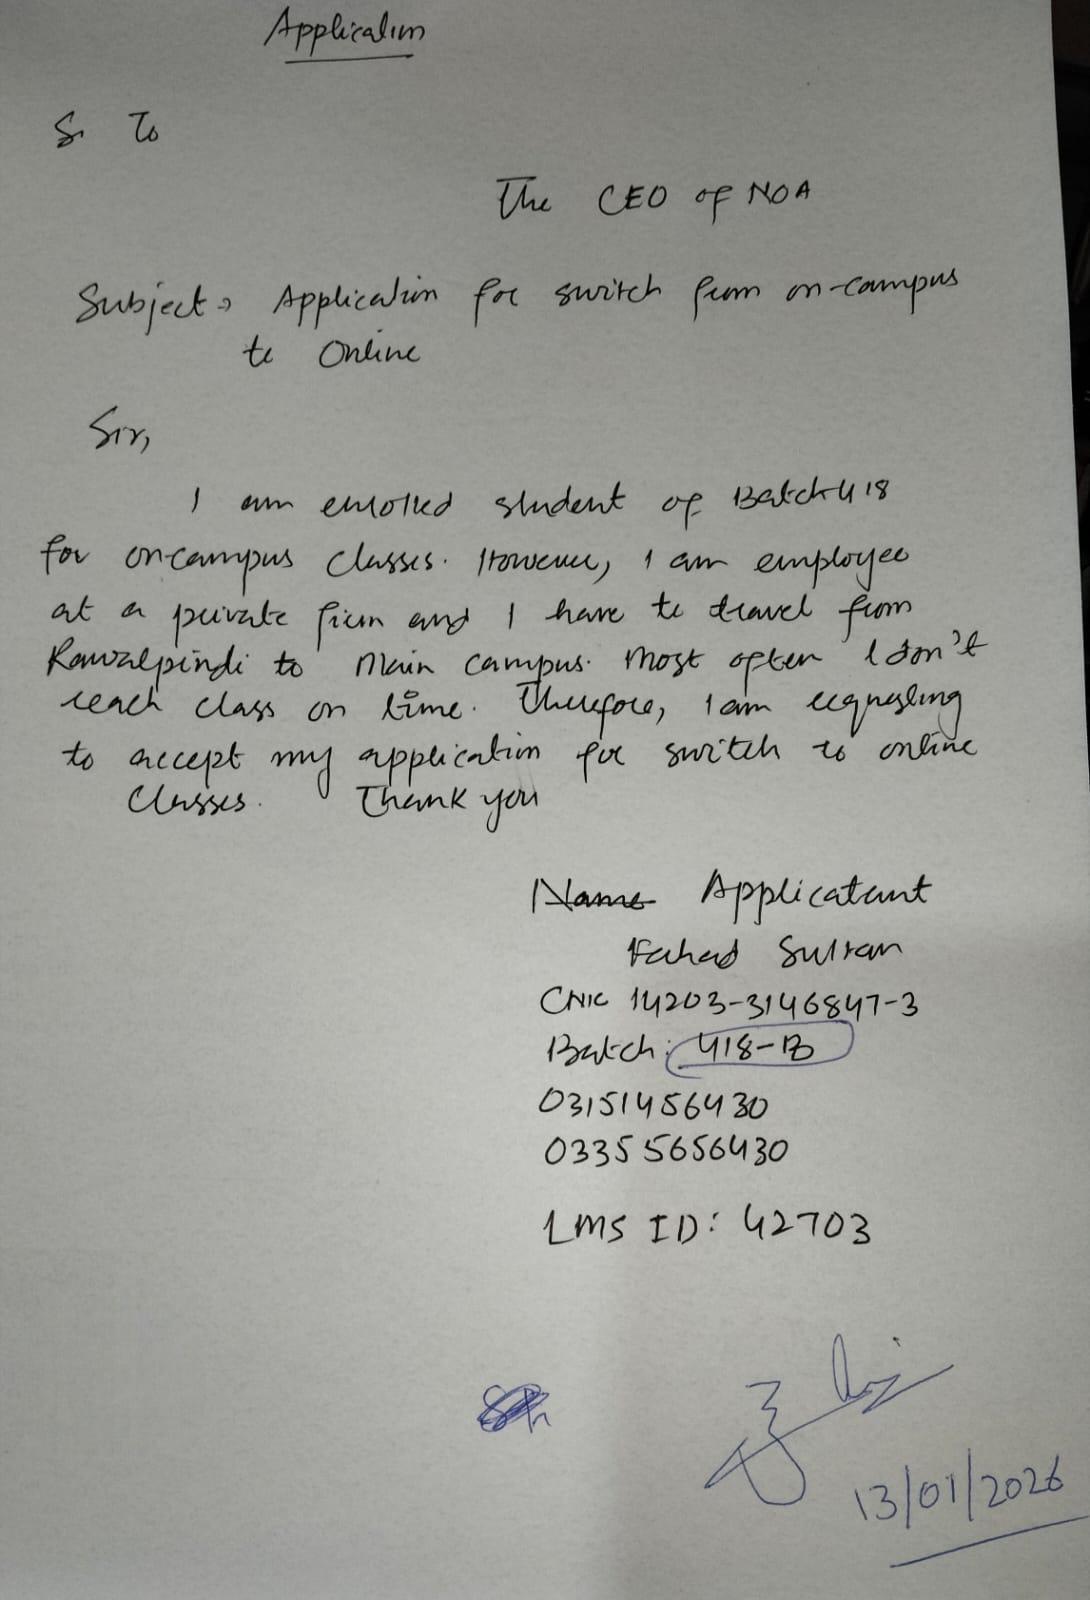 Application
S. To
The CEO of NOA
Subject: Application for switch from on-campus
to Online
Sir,
I am enrolled student of Batch-418
for on-campus classes. However, I am employee
at a private firm and I have to travel from
Rawalpindi to main campus. Most often I don't
reach class on time. Therefore, I am requesting
to accept my application for switch to online
Classes. Thank you
Name Applicatant
Fahad Sultan
CNIC 14203-3146847-3
Batch: 418-B
03151456430
03355656430
LMS ID: 42703
13/01/2026